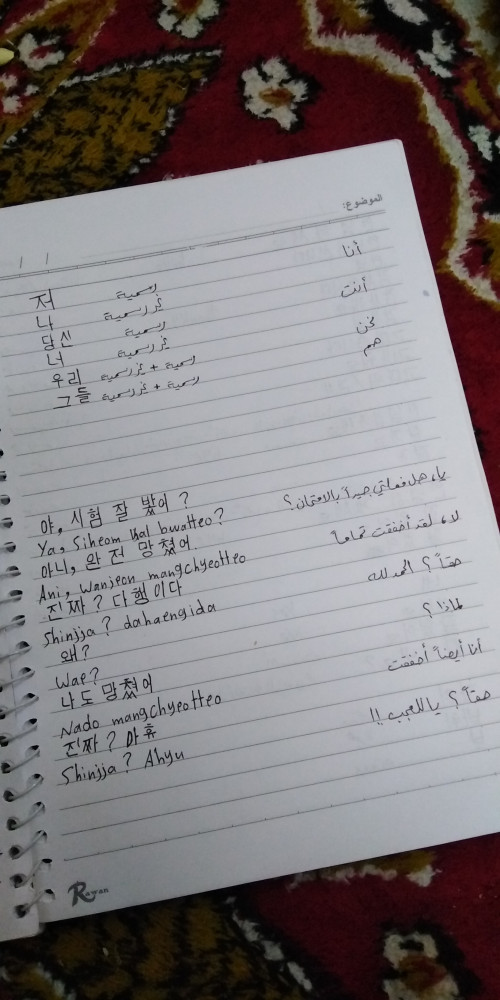 الموضوع:
/ /
저 رسمية أنا
나 غير رسمية
당신 رسمية أنت
너 غير رسمية
우리 رسمية + غير رسمية نحن
그들 رسمية + غير رسمية هم
야, 시험 잘 봤어 ? يا، هل فعلتي جيداً بالامتحان؟
Ya, Siheom bal bwatteo?
아니, 완전 망쳤어 لا، لقد أخفقت تماماً
Ani, Wanjeon mangchyeotteo
진짜 ? 다행이다 حقاً؟ الحمد لله
Shinjja ? dahaengida
왜? لماذا؟
Wae?
나도 망쳤어 أنا أيضاً أخفقت
Nado mangchyeotteo
진짜 ? 아휴 حقاً؟ يا للعجب !!
Shinjja ? Ahyu
Rawan